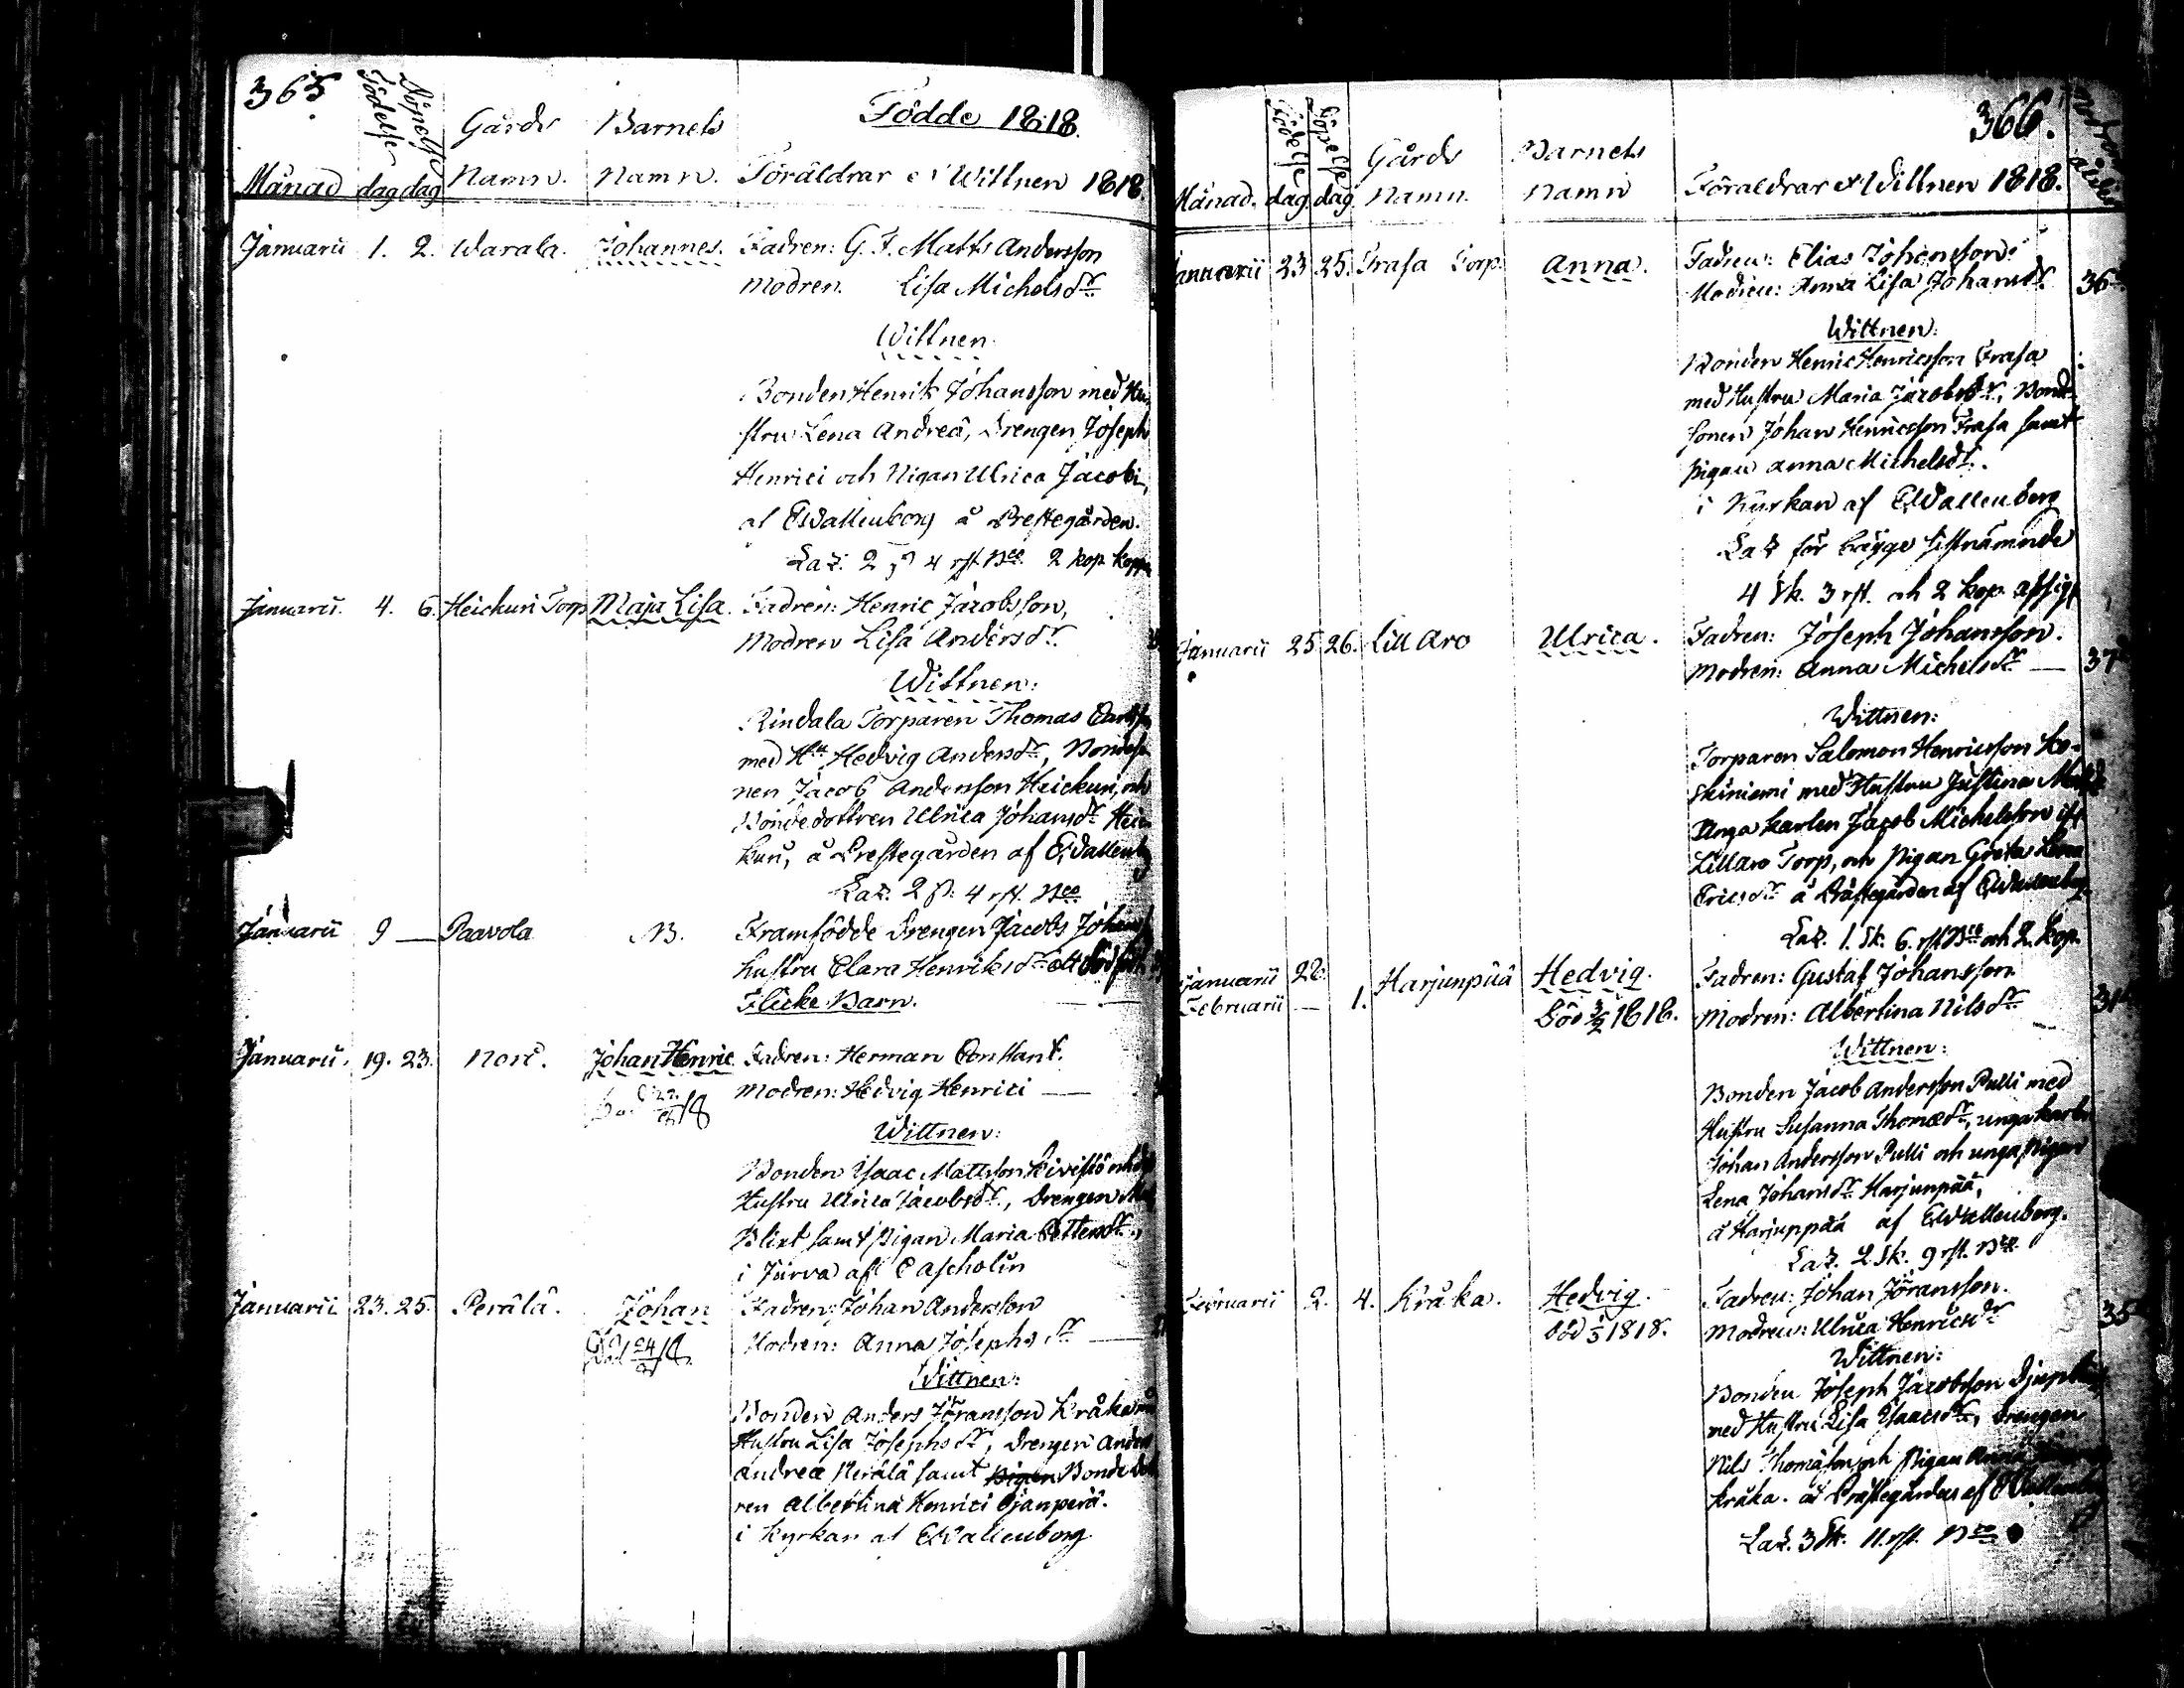 365
Födelse
Döpelse
Gårds
Barnets
Födde 1818.
Månad dag dag Namn. Namn. Föräldrar et Wittnen 1818
Januarii 1. 2. Warala. Johannes. Fadren: G. F. Matts Andersson
Modren. Lisa Michelsdr.
Wittnen.
Bonden Henrik Johansson med Hu
stru Lena Andreæ, Drengen Joseph
Henrici och Pigan Ulrica Jacobi,
af EWallenborg å Prestegården.
Laz. 2 4 rst. Bco. 2 kop. kopp
Januarii. 4. 6. Heickuri Torp Maja Lisa. Fadren: Henric Jacobsson,
Modren Lisa Andersdr.
Wittnen:
Rindala Torparen Thomas
med Hu. Hedvig Andersdr., Bondeso
nen Jacob Andersson Heickuri, och
Bondedottren Ulrica Johansdr. Heic
kuri, å Prestegården af EWallenb
Laz. 2 4 rst. Bco
Januarii 9 — Paavola NB. Framfödde Drengen Jacobs Johans
hustru Clara Henriksdr. ett dödfödt
Flicke Barn.
Januarii. 19. 23. Nori. Johan Henric Fadren: Herman Constant.
Död 18 Modren: Hedvig Henrici —
Wittnen:
Bonden Isaac Mattsson Kivistö och
Hustru Ulrica Jacobsdr., Drengen
Blixt samt Pigan Maria
i Jurva af Cascholin
Januarii 23. 25. Perälä. Johan Fadren: Johan Andersson
Död Modren: Anna Josephsdr. —
Wittnen:
Bonden Anders Jöransson Kråka
Hustru Lisa Josephsdr., Drengen Anders
Andreæ Perälä samt Pigan Bondedot
ren Albertina Henrici Ojanperä.
i Kyrkan af EWallenborg
366.
Födelse
Döpelse
Gårds
Barnets
Månad. dag. dag. Namn. Namn Föräldrar et Wittnen 1818.
Januarii 23 25. Trasa Torp. Anna. Fadren: Elias Johansson
Modren: Anna Lisa Johansdr. 36
Wittnen:
Bonden Henric Henricsson Trasa
med Hustru Maria Jacobsdr., Bonde
sonen Johan Henricsson Trasa samt
pigan Anna Michelsdr.
i Kyrkan af EWallenberg
Laz för bägge sistnämnde
4 Sk. 3 rst. och 2 kop.
Januarii 25 26. Lill Aro Ulrica. Fadren: Joseph Johansson.
Modren: Anna Michelsdr. — 37
Wittnen:
Torparen Salomon Henricsson Ko-
skiniemi med Hustru Justina
Unga karlen Jacob Michelsson
Lillaro Torp, och Pigan Greta Lena
Ericsdr. å Prästegården af EWallenberg
Laz. 1. Sk. 6. rst Bco och 2. kop.
Januarii 28. Harjunpää Hedvig. Fadren: Gustaf Johansson
Februarii — 1. död 3/2 1818. Modren: Albertina Nilsdr.
Wittnen:
Bonden Jacob Andersson Pulli med
Hustru Susanna Thomædr., unga karlen
Johan Andersson Pulli och unga pigan
Lena Johansdr. Harjunpää,
å Harjunpää af EWallenberg.
Laz. 2 Sk. 9 rst. Bco.
Februarii 2. 4. Kråka. Hedvig. Fadren: Johan Jöransson.
död 1818. Modren: Ulrica Henricsdr 35
Wittnen:
Bonden Joseph Jacobsson
med Hustru Lisa Isaacsdr., Drengen
Nils Thomasson och Pigan
Kråka. å Prästegården af
Laz. 3 Sk. 11. rst. Bco